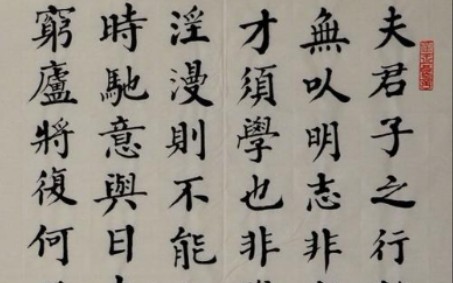 夫君子之行
無以明志非
才須學也非
淫漫則不能
時馳意與日
窮廬將復何